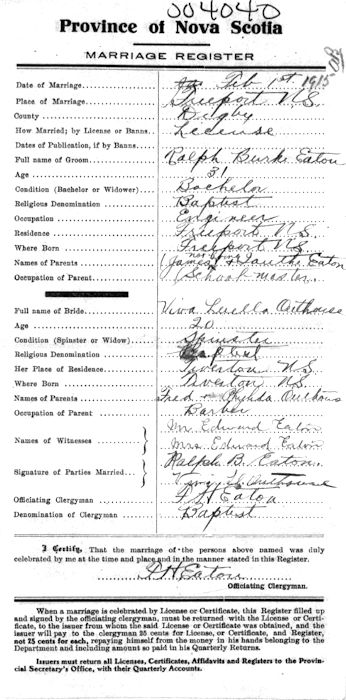 004040
Province of Nova Scotia
MARRIAGE REGISTER
Date of Marriage Feb 1st 1915
Place of Marriage Freeport N.S.
County Digby
How Married; by License or Banns License
Dates of Publication, if by Banns
Full name of Groom Ralph Burke Eaton
Age 31
Condition (Bachelor or Widower) Bachelor
Religious Denomination Baptist
Occupation Engineer
Residence Freeport N.S.
Where Born Freeport N.S.
Names of Parents James Eaton
Occupation of Parent School master
Full name of Bride Viva Luella Outhouse
Age 20
Condition (Spinster or Widow) Spinster
Religious Denomination Baptist
Her Place of Residence Tiverton N.S.
Where Born Tiverton N.S.
Names of Parents Fred Outhouse
Occupation of Parent Barber
Names of Witnesses Mr Edward Eaton
Mrs Edward Eaton
Signature of Parties Married Ralph B. Eaton
Outhouse
Officiating Clergyman Eaton
Denomination of Clergyman Baptist
I Certify, That the marriage of the persons above named was duly
celebrated by me at the time and place and in the manner stated in this Register.
Eaton
Officiating Clergyman.
When a marriage is celebrated by License or Certificate, this Register filled up
and signed by the officiating clergyman, must be returned with the License or Certi-
ficate, to the issuer from whom the said License or Certificate was obtained, and the
issuer will pay to the clergyman 25 cents for License, or Certificate, and Register,
not 75 cents for each, repaying himself from the money in his hands belonging to the
Department and including amount so paid in his Quarterly Returns.
Issuers must return all Licenses, Certificates, Affidavits and Registers to the Provin-
cial Secretary's Office, with their Quarterly Accounts.